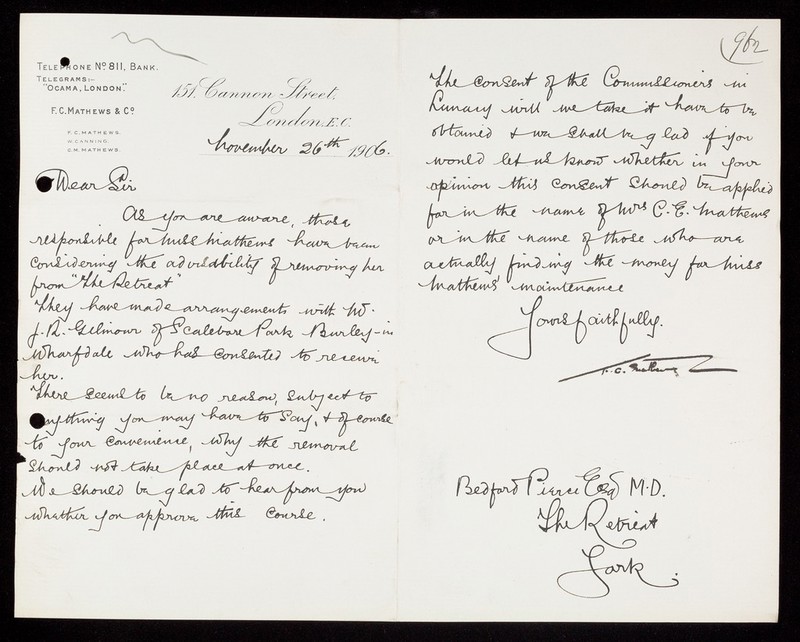 TELEPHONE Nº 811, BANK.
TELEGRAMS:-
"OCAMA, LONDON."
F. C. MATHEWS & Cº
F. C. MATHEWS.
W. CANNING.
C. M. MATHEWS.
151, Cannon Street,
London, E.C.
November 26th 1906.
Dear Sir
As you are aware, those
responsible for Miss Mathews have been
considering the advisability of removing her
from "The Retreat"
They have made arrangements with Mr.
J. R. Gilmour of Scalebore Park Burley-in
Wharfdale who has consented to receive
her.
There seems to be no reason, subject to
anything you may have to say, & of course
to your convenience, why the removal
should not take place at once.
We should be glad to hear from you
whether you approve this course.
962
The consent of the Commissioners in
Lunacy will we take it have to be
obtained & we shall be glad if you
would let us know whether in your
opinion this consent should be applied
for in the name of Mrs C. E. Mathews
or in the name of those who are
actually finding the money for Miss
Mathews' maintenance
Yours faithfully.
F. C. Mathews
Bedford Pierce Esq M.D.
The Retreat
York.